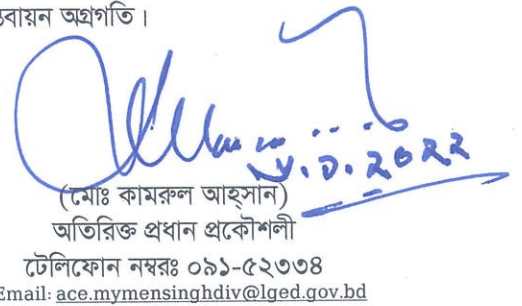 বায়ন অগ্রগতি।
(মোঃ কামরুল আহ্সান)
অতিরিক্ত প্রধান প্রকৌশলী
টেলিফোন নম্বরঃ ০৯১-৫২৩৩৪
Email: ace.mymensinghdiv@lged.gov.bd